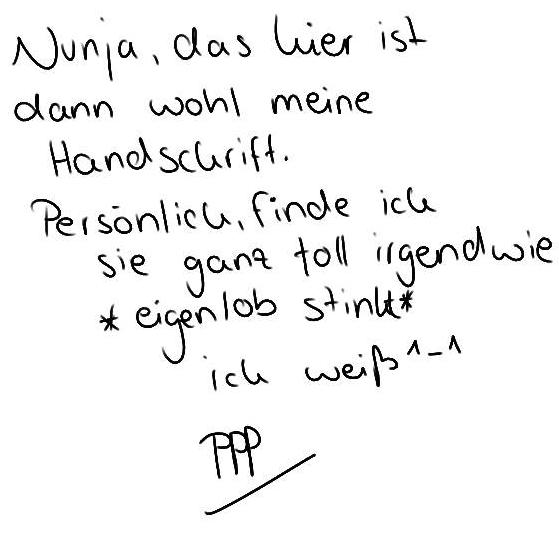 Nunja, das hier ist
dann wohl meine
Handschrift.
Persönlich, finde ich
sie ganz toll irgendwie
*eigenlob stinkt*
ich weiß ^-^
PPP